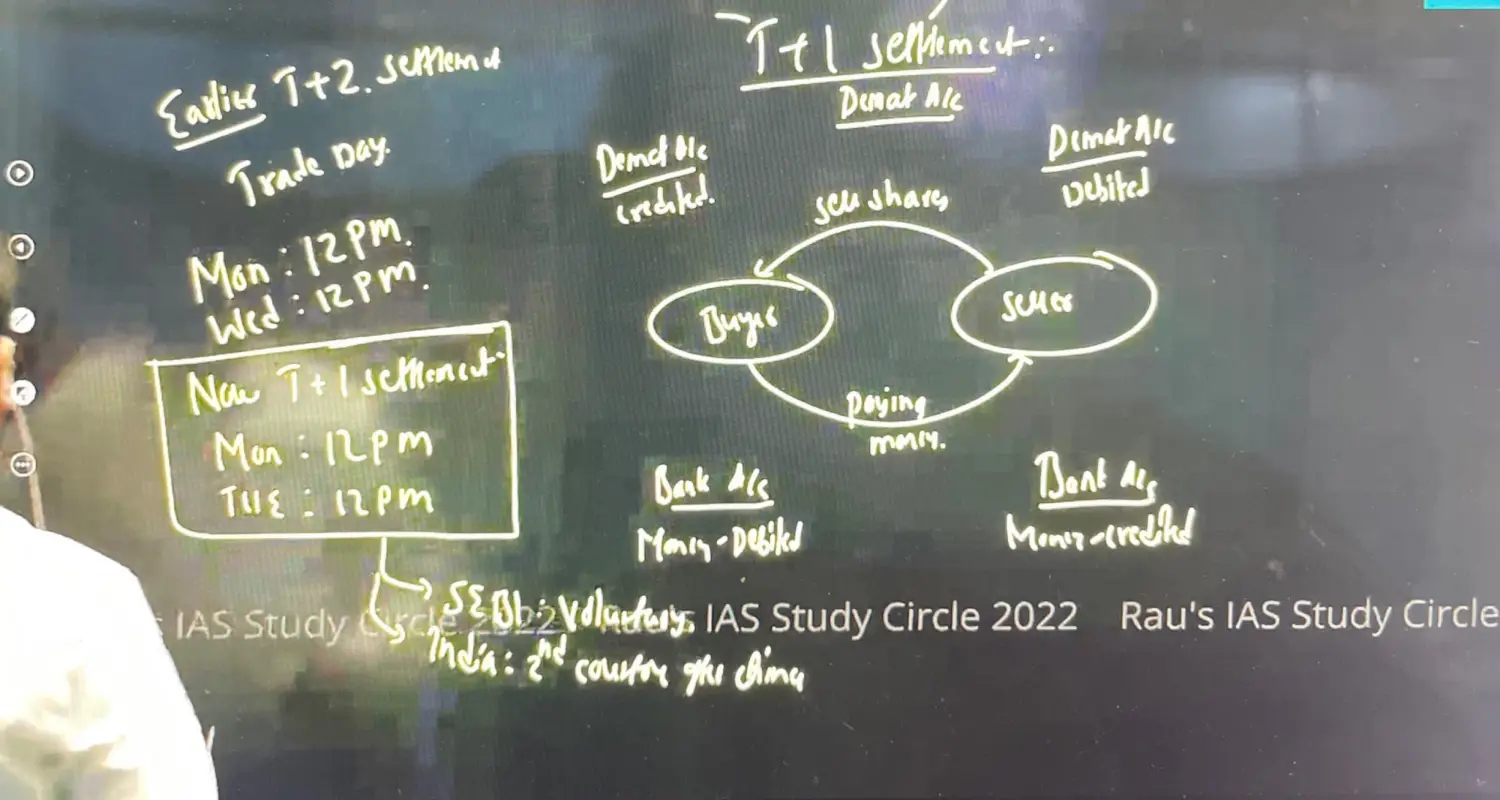 Earlier T+2. settlement
Trade Day.
Mon : 12 PM.
Wed : 12 PM.
Now T+1 settlement.
Mon : 12 PM
TUE : 12 PM
SEBI : Voluntary.
India : 2nd country after China
T+1 settlement :
Demat A/c
Demat A/c
credited.
Demat A/c
Debited
sell shares
Buyer
Seller
paying
money.
Bank A/c
Money - Debited
Bank A/c
Money - credited
IAS Study Circle 2022
Rau's IAS Study Circle 2022
Rau's IAS Study Circle